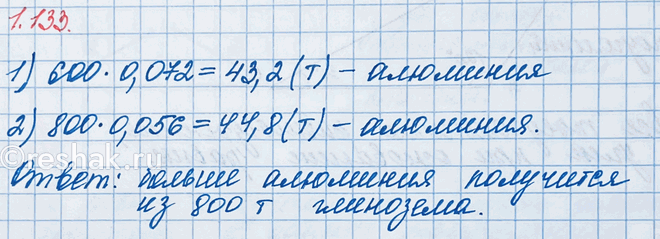 1.133.
1) 600 · 0,072 = 43,2 (т) – алюминия
2) 800 · 0,056 = 44,8 (т) – алюминия.
Ответ: больше алюминия получится
из 800 т глинозема.
reshak.ru